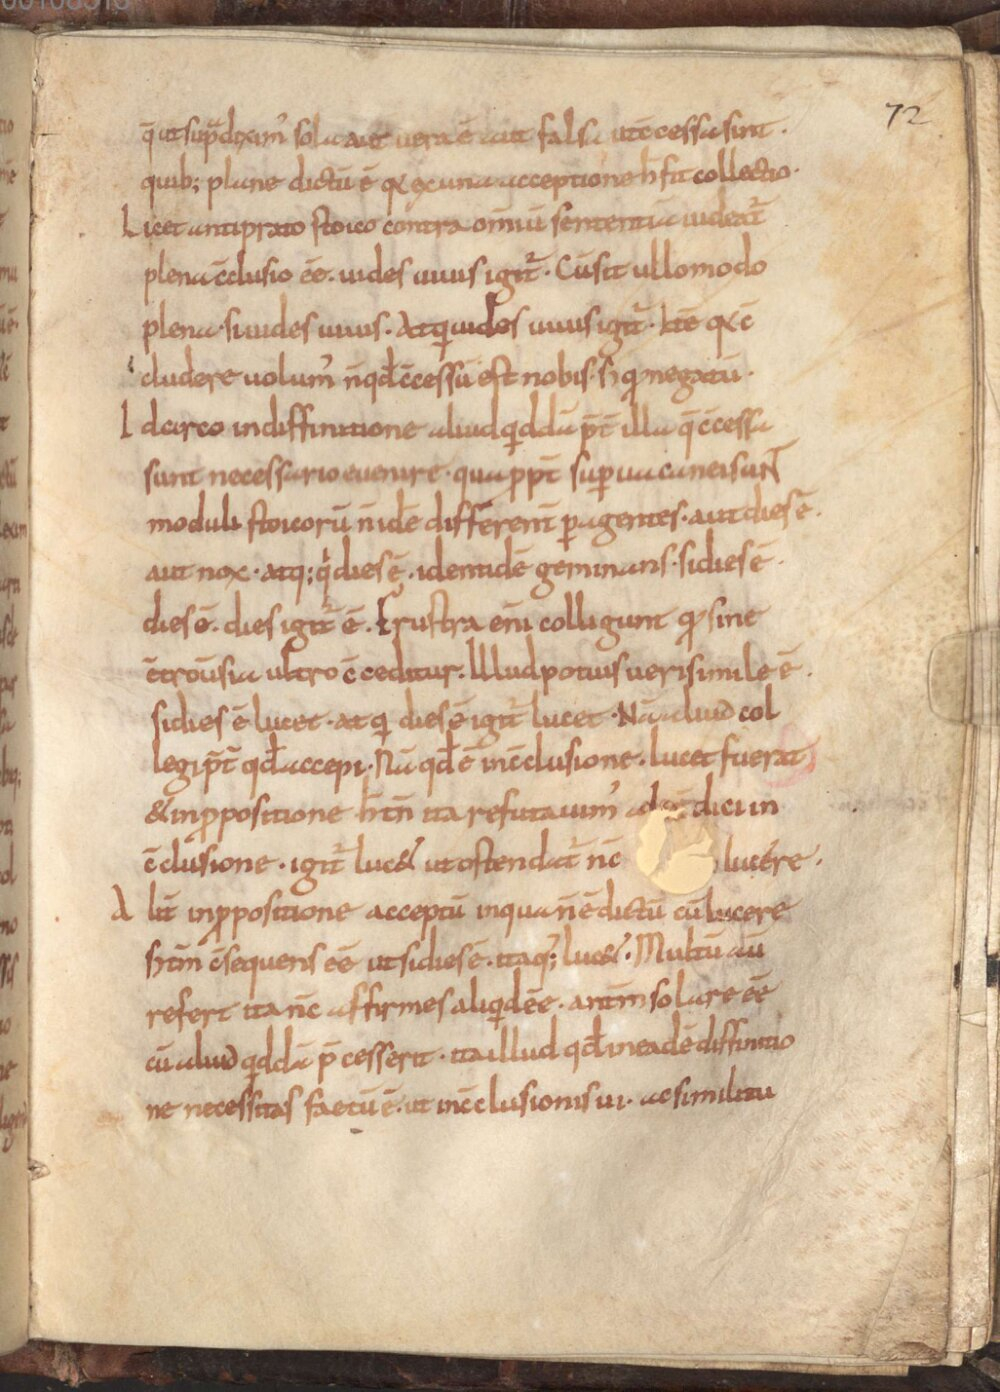 72
q̄ ut sup̄ dixim᾽ sola aut uera ē aut falsa ut c̄cessa sint.
quib; plane dictū ē qđ ex una acceptione n̄ fit collectio.
Licet antiprato stoico contra omniū sententia uideat᷑
plena c̄clusio ēē. uides uiuis igit᷑. Cū sit ullo modo
plena. si uides uiuis. Atqui uides uiuis igit᷑.
cludere uolum᾽ n̄ qđ c̄cessū est nobis. negatū.
Idcirco in diffinitione aliud qddā p̄t illa q̄ c̄cessa
sunt necessario euenire. qua ppt̄ supuacanei sunt
moduli stoicorū n̄ idē differentē pagentes. aut dies ē.
aut nox. atq; dies ē. identidē geminans. si dies ē
dies ē. dies igit᷑ ē. Frustra eni colligunt sine
c̄trouersia ultro c̄ceditur. Illud potius uerisimile ē.
si dies ē lucet. atq dies ē igit᷑ lucet. Nā aliud col
legi p̄t qđ accepi. Nā qđ ē in c̄clusione. lucet fuerat
& in ppositione ita refutauim᾽ dici in
c̄clusione. igit᷑ luc& ut ostendat᷑ nc̄ lucere.
Alit̄ in ppositione acceptū in qua n̄ ē dictū cū lucere
c̄sequens ēē ut si dies ē. itaq; luc&. Multū aū
refert ita nc̄ affirmes aliqd ēē. solare ēē
cū aliud qddā p̄cesserit. ita illud qđ in eadē diffinitio
ne necessitas factū ē. ut in c̄clusionis ui. ac similitu